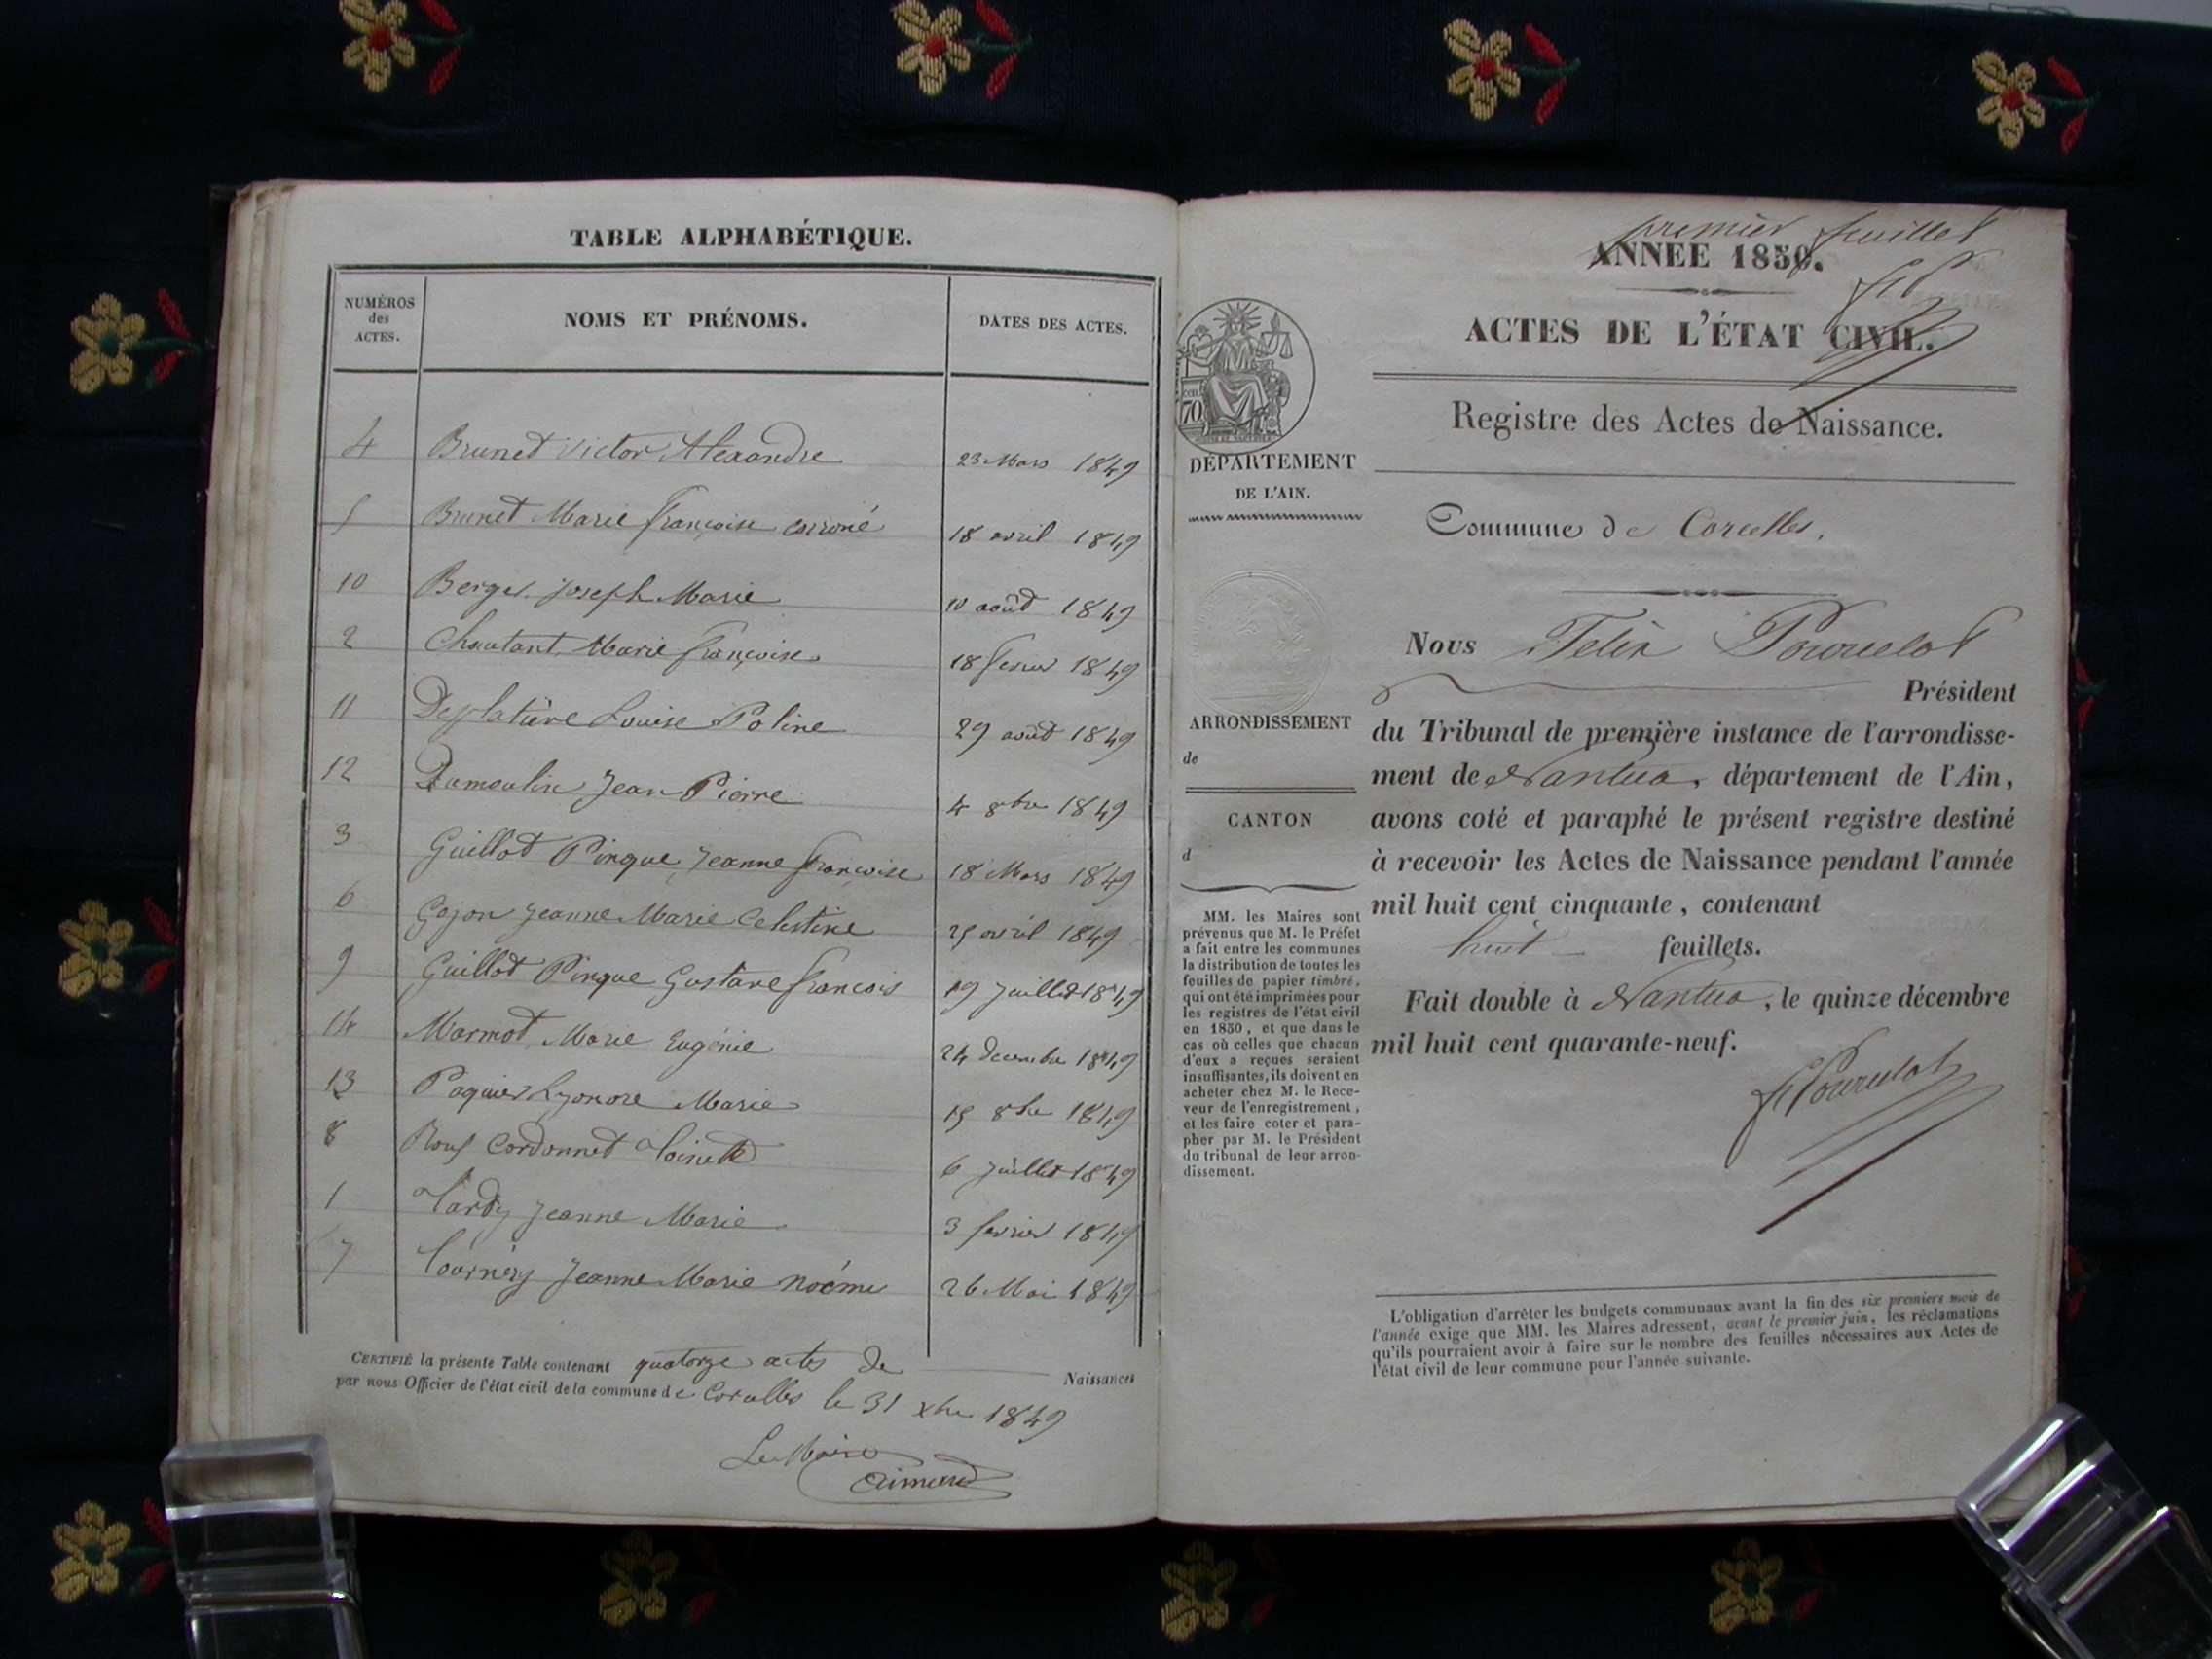 TABLE ALPHABÉTIQUE.
NUMÉROS
des
ACTES.
NOMS ET PRÉNOMS.
DATES DES ACTES.
4 Brunet Victor Alexandre 23 Mars 1849
5 Brunet Marie françoise 18 avril 1849
10 Berger joseph Marie 10 août 1849
2 Chautant Marie françoise 18 fevrier 1849
11 Deplatière Louise Poline 29 août 1849
12 Dumoulin Jean Pierre 4 8bre 1849
3 Guillot Pinque Jeanne françoise 18 Mars 1849
6 Gojon Jeanne Marie Celestine 25 avril 1849
9 Guillot Pinque Gustave françois 19 Juillet 1849
14 Marmot Marie Eugénie 24 decembre 1849
13 Paquier Lyonore Marie 15 8bre 1849
8 Cordonnet 6 juillet 1849
1 Tardy Jeanne Marie 3 fevrier 1849
7 Tournery Jeanne Marie Noémie 26 Mai 1849
CERTIFIÉ la présente Table contenant quatorze actes de Naissances
par nous Officier de l'état civil de la commune de Corcelles le 31 xbre 1849
Le Maire
premier feuillet
ANNÉE 1850.
ACTES DE L'ÉTAT CIVIL.
Registre des Actes de Naissance.
70
DÉPARTEMENT
DE L'AIN.
Commune de Corcelles,
Nous Felix Pourcelot
Président
ARRONDISSEMENT
de
CANTON
d
du Tribunal de première instance de l'arrondisse-
ment de Nantua, département de l'Ain,
avons coté et paraphé le présent registre destiné
à recevoir les Actes de Naissance pendant l'année
mil huit cent cinquante, contenant
huit feuillets.
Fait double à Nantua, le quinze décembre
mil huit cent quarante-neuf.
F Pourcelot
MM. les Maires sont
prévenus que M. le Préfet
a fait entre les communes
la distribution de toutes les
feuilles de papier timbré,
qui ont été imprimées pour
les registres de l'état civil
en 1850, et que dans le
cas où celles que chacun
d'eux a reçues seraient
insuffisantes, ils doivent en
acheter chez M. le Rece-
veur de l'enregistrement,
et les faire coter et para-
pher par M. le Président
du tribunal de leur arron-
dissement.
L'obligation d'arrêter les budgets communaux avant la fin des six premiers mois de
l'année exige que MM. les Maires adressent, avant le premier juin, les réclamations
qu'ils pourraient avoir à faire sur le nombre des feuilles nécessaires aux Actes de
l'état civil de leur commune pour l'année suivante.